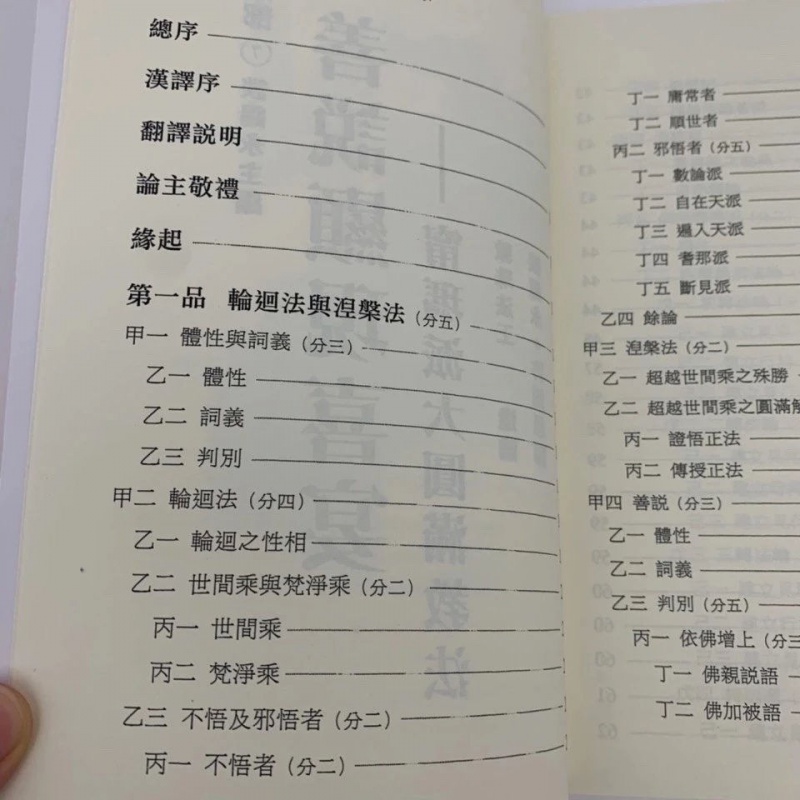 總序
漢譯序
翻譯説明
論主敬禮
緣起
第一品 輪迴法與涅槃法（分五）
甲一 體性與詞義（分三）
乙一 體性
乙二 詞義
乙三 判別
甲二 輪迴法（分四）
乙一 輪迴之性相
乙二 世間乘與梵淨乘（分二）
丙一 世間乘
丙二 梵淨乘
乙三 不悟及邪悟者（分二）
丙一 不悟者（分二）
丁一 庸常者
丁二 順世者
丙二 邪悟者（分五）
丁一 數論派
丁二 自在天派
丁三 遍入天派
丁四 耆那派
丁五 斷見派
乙四 餘論
甲三 涅槃法（分二）
乙一 超越世間乘之殊勝
乙二 超越世間乘之圓滿解
丙一 證悟正法
丙二 傳授正法
甲四 善説（分三）
乙一 體性
乙二 詞義
乙三 判別（分五）
丙一 依佛增上（分三
丁一 佛親説語
丁二 佛加被語